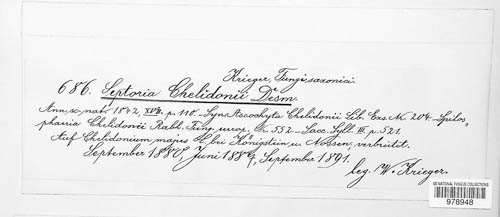 Krieger, Fungi saxonici.
686. Septoria Chelidonii Desm.
Ann. sc. nat. 1842, XVII. p. 110. - Syn. Ascochyta Chelidonii Lib. Exs. No. 204. - Spilos-
phaeria Chelidonii Rabh. Fung. europ. No. 552 - Sacc. Syll. III. p. 521.
Auf Chelidonium majus L. bei Königstein u. Nossen, verbreitet.
September 1880, Juni 188, September 1891.
leg. W. Krieger.
US NATIONAL FUNGUS COLLECTIONS
978948